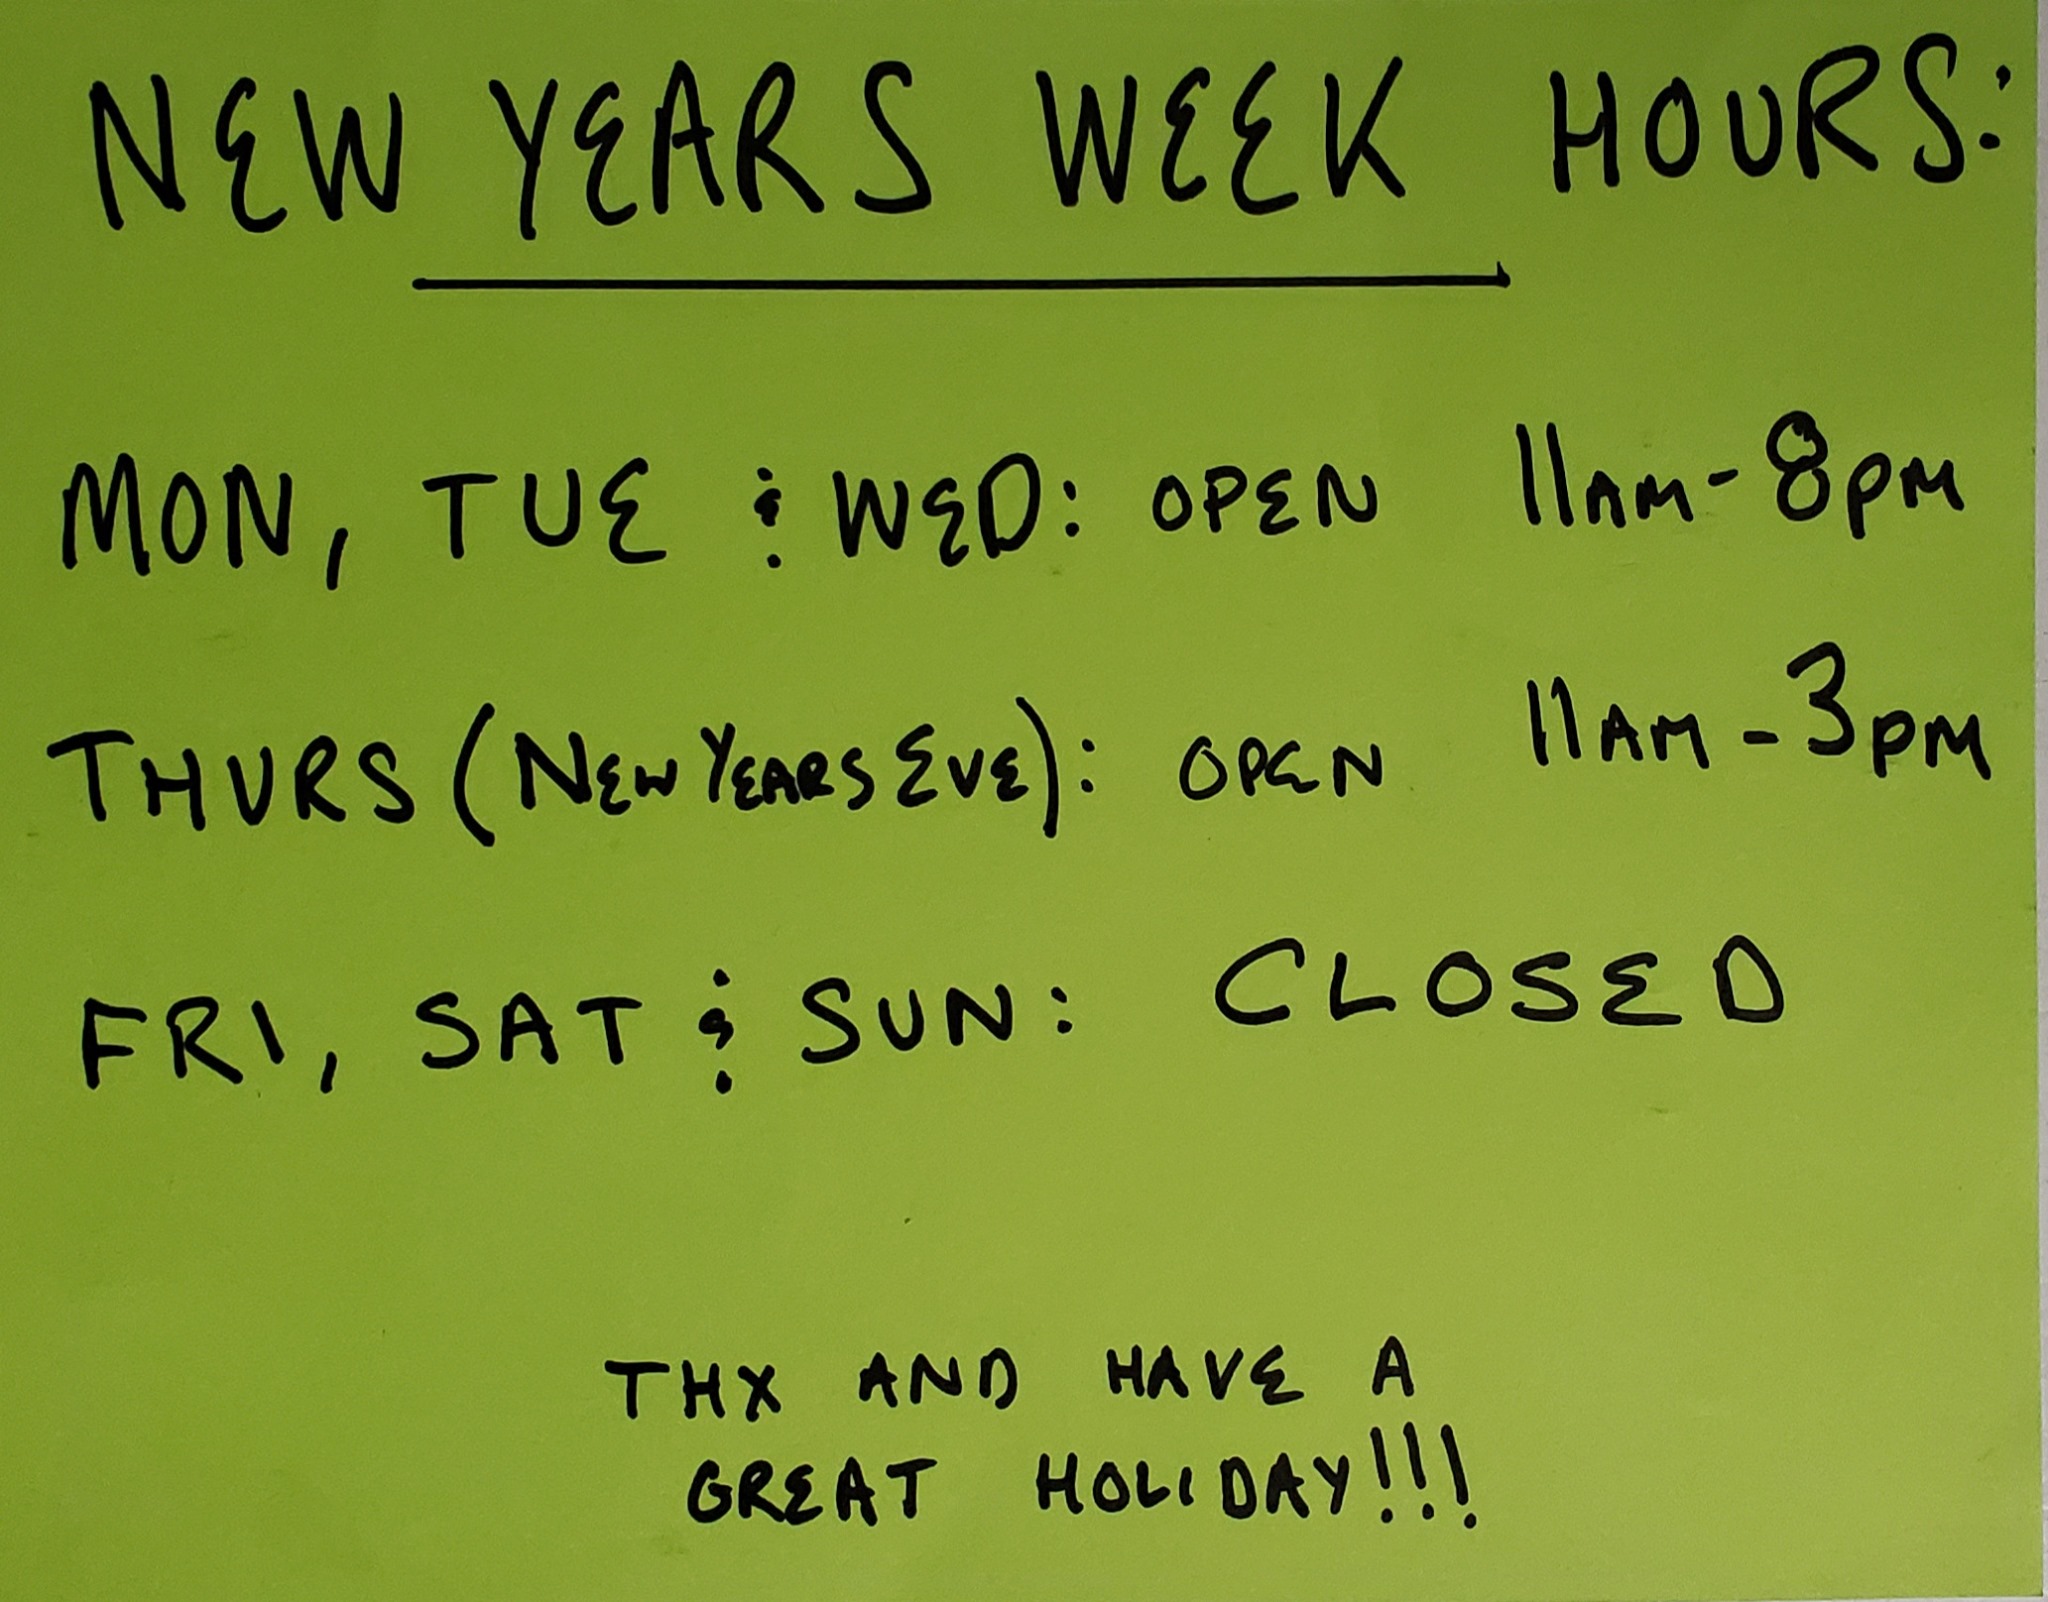 NEW YEARS WEEK HOURS:
MON, TUE & WED: OPEN 11AM-8PM
THURS (NEW YEARS EVE): OPEN 11AM-3PM
FRI, SAT & SUN: CLOSED
THX AND HAVE A
GREAT HOLIDAY!!!